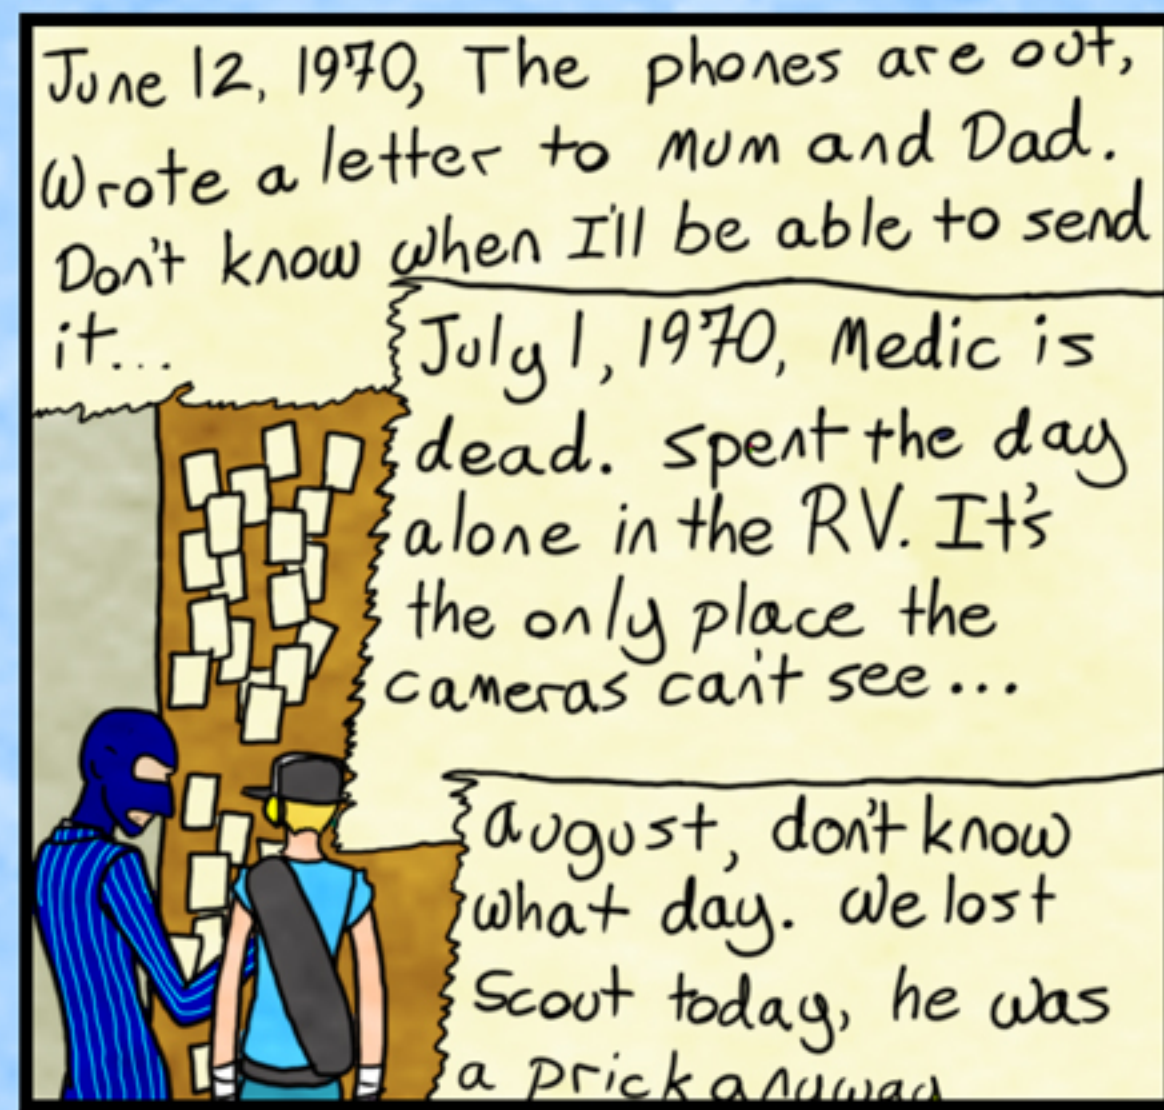 June 12, 1970, The phones are out,
Wrote a letter to Mum and Dad.
Don't know when I'll be able to send
it...
July 1, 1970, Medic is
dead. spent the day
alone in the RV. It's
the only place the
cameras can't see...
August, don't know
what day. We lost
Scout today, he was
a prick anyway